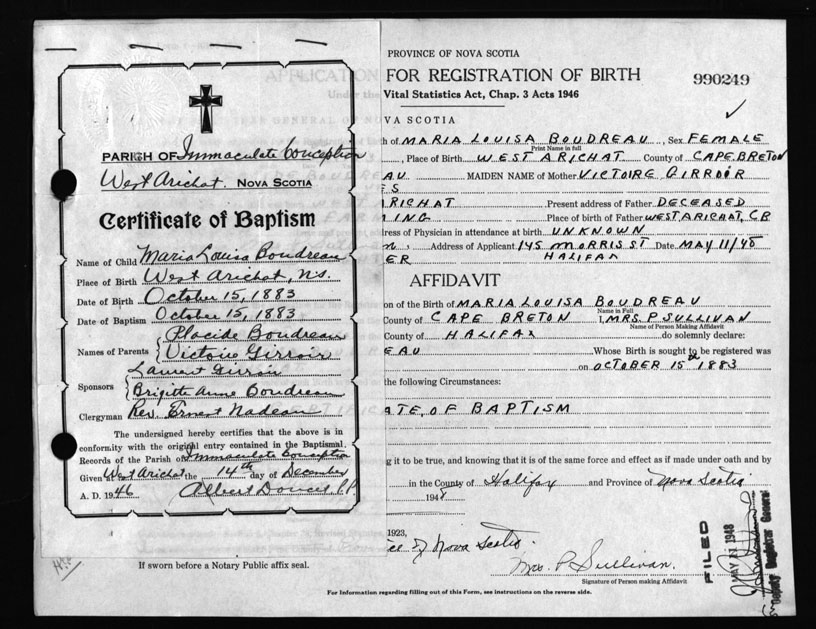 PARISH OF Immaculate Conception
West Arichat. NOVA SCOTIA
Certificate of Baptism
Name of Child Maria Louisa Boudreau
Place of Birth West Arichat, N.S.
Date of Birth October 15, 1883
Date of Baptism October 15, 1883
Names of Parents { Placide Boudreau
Victoire Girroir
Sponsors { Laurent Girroir
Brigitte Anne Boudreau
Clergyman Rev. Ernest Nadeau
The undersigned hereby certifies that the above is in
conformity with the original entry contained in the Baptismal
Records of the Parish of Immaculate Conception
Given at West Arichat the 14th day of December
A. D. 1946 Albert Doucet, P.P.
If sworn before a Notary Public affix seal.
PROVINCE OF NOVA SCOTIA
APPLICATION FOR REGISTRATION OF BIRTH
990249
Under the Vital Statistics Act, Chap. 3 Acts 1946
VA SCOTIA
h of MARIA LOUISA BOUDREAU, Sex FEMALE
Print Name in full
, Place of Birth WEST ARICHAT County of CAPE BRETON
AU MAIDEN NAME of Mother VICTOIRE GIRROIR
ES
RICHAT Present address of Father DECEASED
ING Place of birth of Father WEST ARICHAT, C.B
ress of Physician in attendance at birth UNKNOWN
, Address of Applicant 145 MORRIS ST Date MAY 11/48
ER HALIFAX
AFFIDAVIT
on of the Birth of MARIA LOUISA BOUDREAU
Name in Full
County of CAPE BRETON I, MRS. P SULLIVAN
Name of Person Making Affidavit
County of HALIFAX do solemnly declare:
EAU Whose Birth is sought to be registered was
on OCTOBER 15th 1883
the following Circumstances:
ATE OF BAPTISM
g it to be true, and knowing that it is of the same force and effect as if made under oath and by
in the County of Halifax and Province of Nova Scotia
1948
1923,
ce of Nova Scotia.
Mrs. P. Sullivan.
Signature of Person making Affidavit
For Information regarding filling out of this Form, see instructions on the reverse side.
FILED
MAY 11 1948
Deputy Registrar General